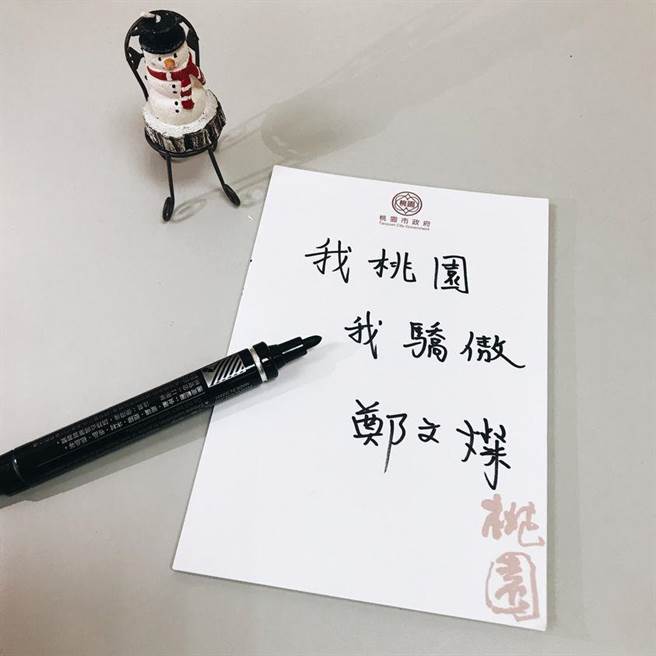 桃園
桃園市政府
Taoyuan City Government
我桃園
我驕傲
鄭文燦
桃園